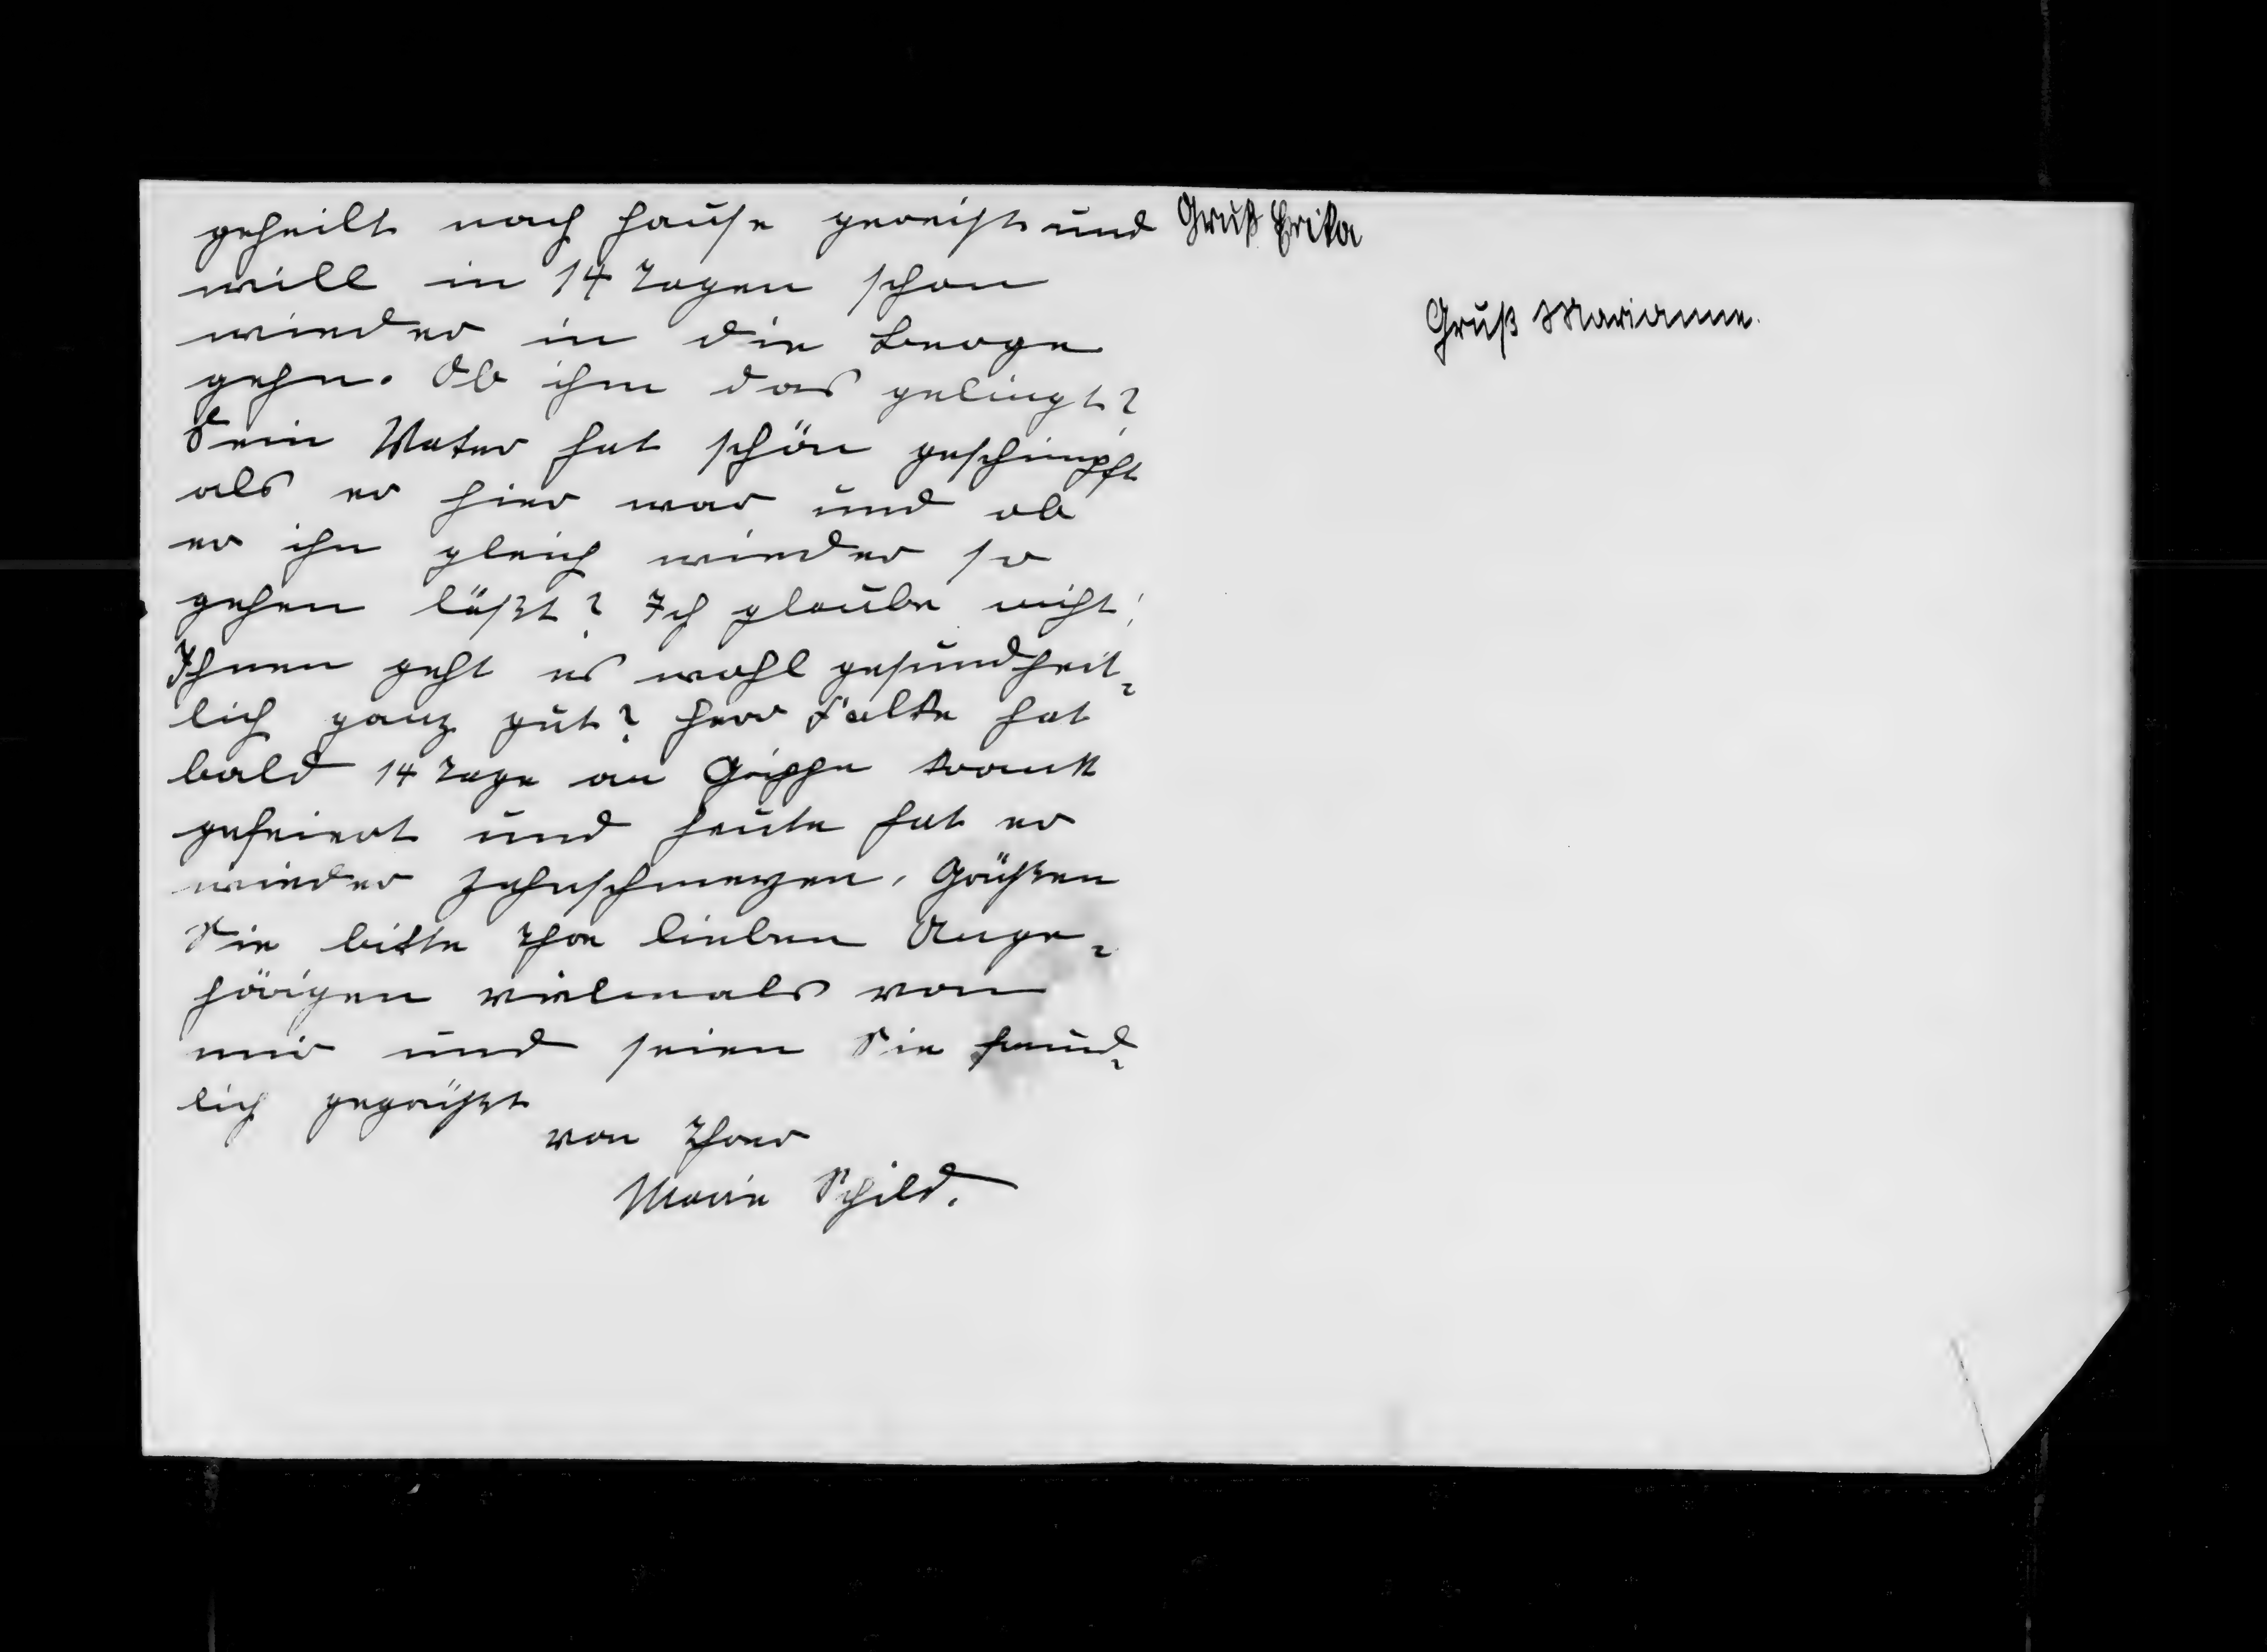 geheilt nach Hause gereist und
will in 14 Tagen schon
wieder in die Berge
gehn. Ob ihm das gelingt?
Sein Vater hat schön geschimpft
als er hier war und ob
er ihn gleich wieder so
gehen läßt? Ich glaube nicht!
Ihnen geht es wohl gesundheit-
lich ganz gut? Herr Falke hat
bald 14 Tage an Grippe krank
gefeiert und heute hat er
wieder Zahnschmerzen. Grüßen
Sie bitte Ihre lieben Ange-
hörigen vielmals von
mir und seien Sie freund-
lich gegrüßt
von Ihrer
Marie Schild.
Gruß Erika
Gruß Marianne.